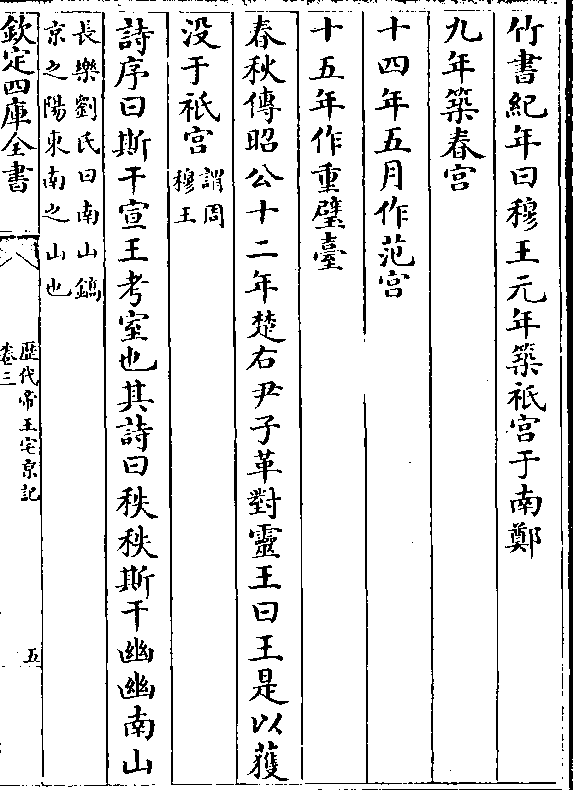 竹書紀年曰穆王元年築祇宮于南鄭
九年築春宮
十四年五月作范宮
十五年作重璧臺
春秋傳昭公十二年楚右尹子革對靈王曰王是以獲
没于祇宮謂周穆王
詩序曰斯干宣王考室也其詩曰秩秩斯干幽幽南山
長樂劉氏曰南山鎬
京之陽東南之山也
欽定四庫全書
歷代帝王宅京記
卷三
五